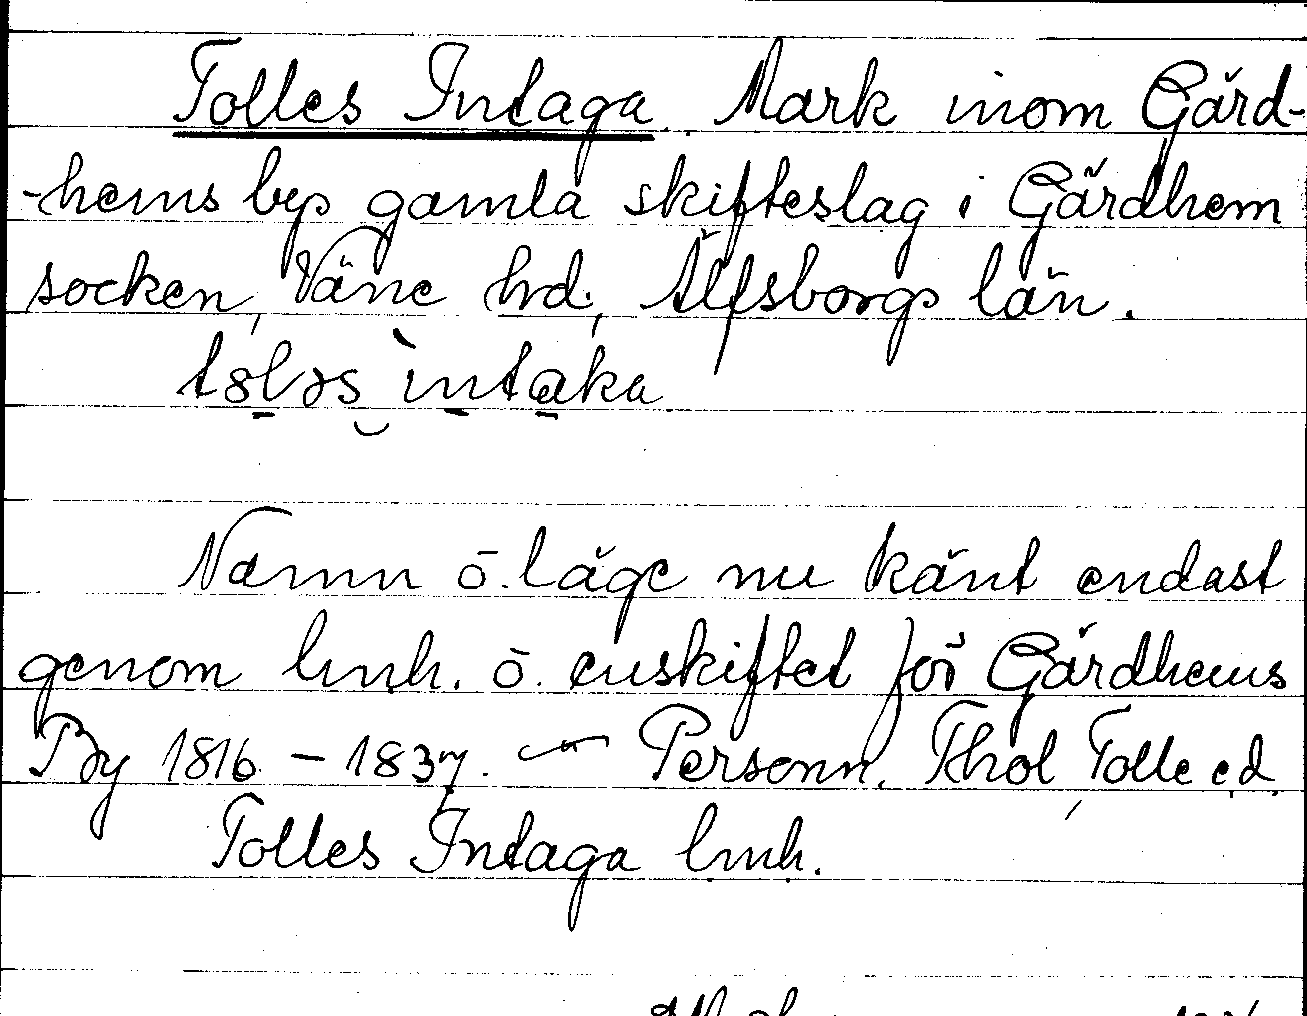 Tolles Intaga. Mark inom Gärd-
-hems bys gamla skifteslag i Gärdhem
socken, Väne hrd, Älfsborgs län.
Namn ō. läge nu känt endast
genom lmh. ō. enskiftet för Gärdhems
By 1816 - 1837. — Personn. Thol, Tolle e.d.
Tolles Intaga lmh.